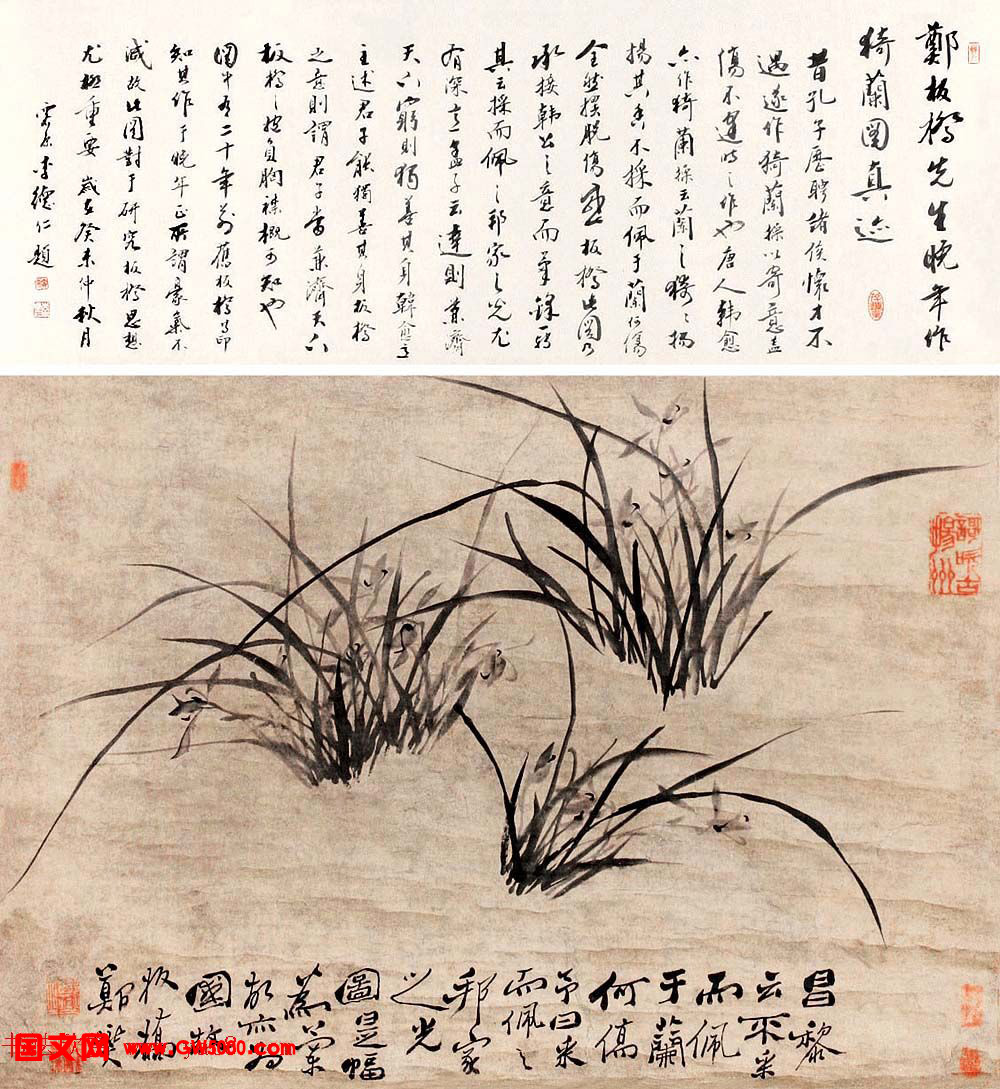 鄭板橋先生晚年作
猗蘭圖真迹
昔孔子歷聘諸侯懷才不
遇遂作猗蘭操以寄意盖
傷不逢時之作也唐人韓愈
亦作猗蘭操云蘭之猗猗揚
揚其香不採而佩于蘭何傷
全然擺脫傷感板橋此圖乃
承接韓公之意而筆鋒轉
其云採而佩之邦家之光尤
有深意孟子云達則兼濟
天下窮則獨善其身韓愈
主述君子能獨善其身板橋
之意則謂君子當兼濟天下
板橋之抱負胸襟概可知也
圖中有二十年前舊板橋印
知其作于晚年正所謂豪氣不
減故此圖對于研究板橋思想
尤極重要歲在癸未仲秋月
李德仁題
歌吹古揚州
昌黎
云不采
而佩
于蘭
何傷
予曰采
而佩之
邦家
之光
圖是幅
國
板橋
鄭燮
国文网